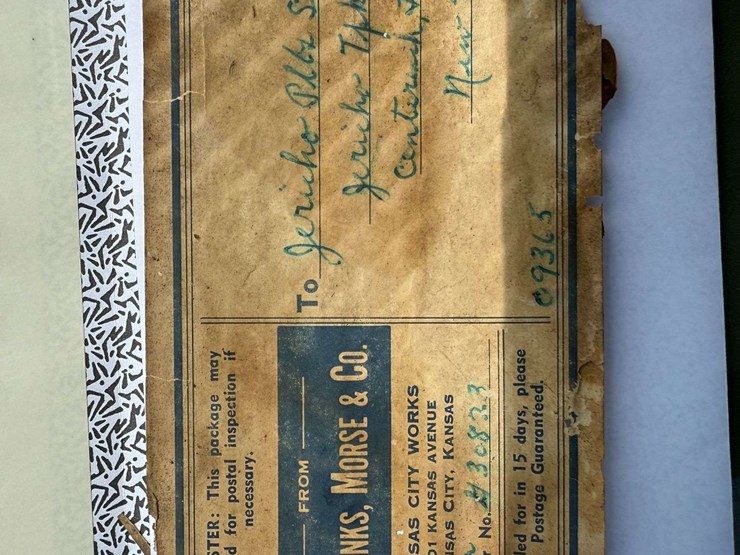 STER: This package may
d for postal inspection if
necessary.
FROM
NKS, MORSE & CO.
SAS CITY WORKS
01 KANSAS AVENUE
SAS CITY, KANSAS
r No. 430823
led for in 15 days, please
Postage Guaranteed.
To Jericho Plbg S
Jericho Tpk
Centereach,
New
09365